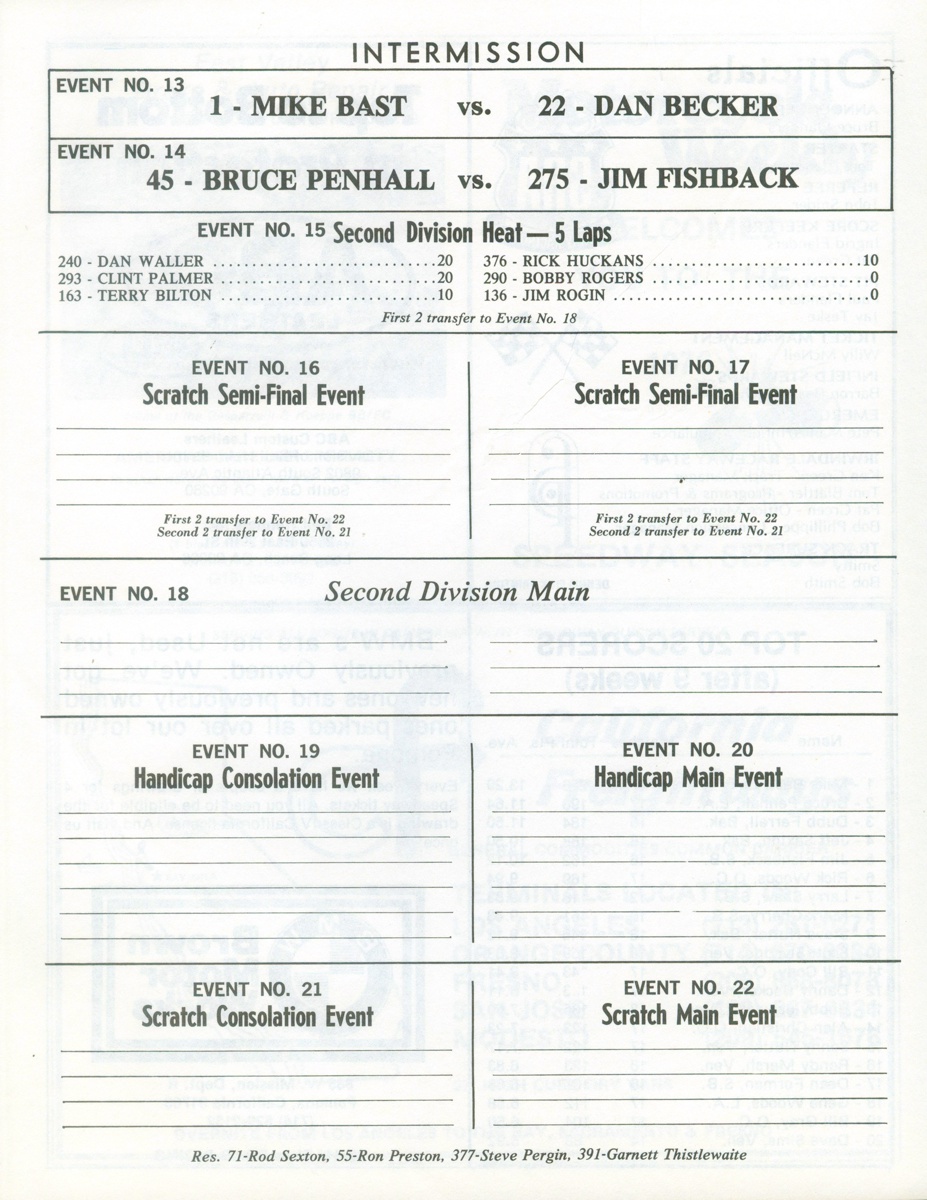 INTERMISSION
EVENT NO. 13
1 - MIKE BAST vs. 22 - DAN BECKER
EVENT NO. 14
45 - BRUCE PENHALL vs. 275 - JIM FISHBACK
EVENT NO. 15 Second Division Heat — 5 Laps
240 - DAN WALLER ..............................20
293 - CLINT PALMER .............................20
163 - TERRY BILTON .............................10
376 - RICK HUCKANS .............................10
290 - BOBBY ROGERS ..............................0
136 - JIM ROGIN ...................................0
First 2 transfer to Event No. 18
EVENT NO. 16
Scratch Semi-Final Event
First 2 transfer to Event No. 22
Second 2 transfer to Event No. 21
EVENT NO. 17
Scratch Semi-Final Event
First 2 transfer to Event No. 22
Second 2 transfer to Event No. 21
EVENT NO. 18 Second Division Main
EVENT NO. 19
Handicap Consolation Event
EVENT NO. 20
Handicap Main Event
EVENT NO. 21
Scratch Consolation Event
EVENT NO. 22
Scratch Main Event
Res. 71-Rod Sexton, 55-Ron Preston, 377-Steve Pergin, 391-Garnett Thistlewaite